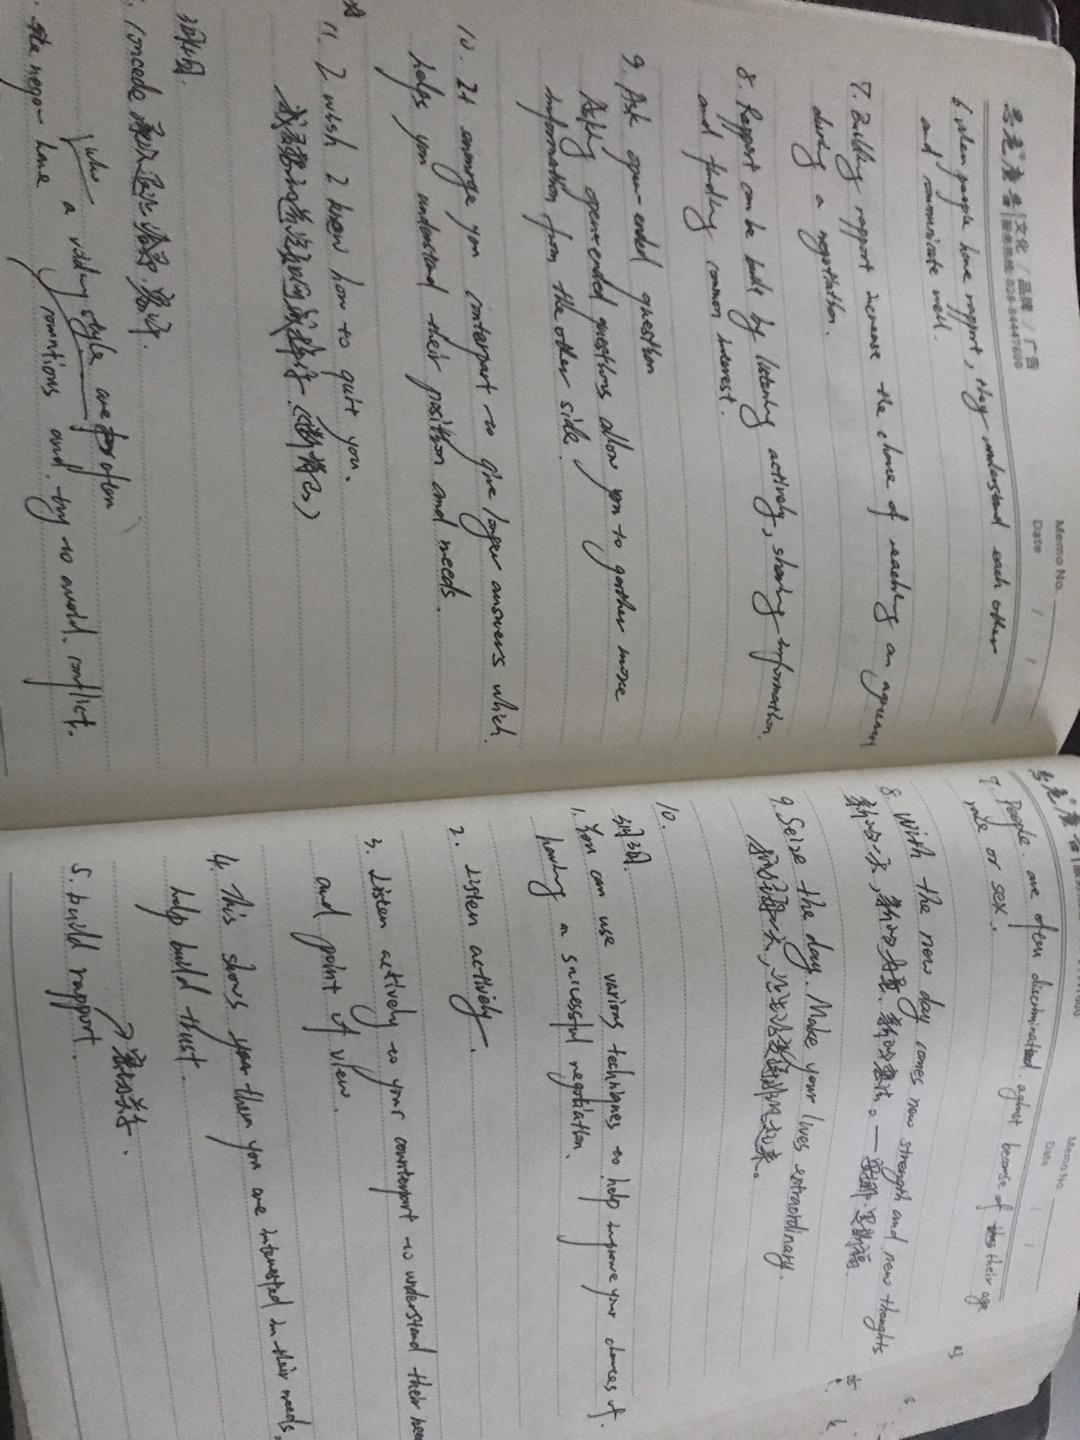 Memo No.
Date / /
文化 / 品牌 / 广告
服务热线: 028-84447600
6. when people have rapport, they understand each other
and communicate well.
7. Building rapport increase the chance of reaching an agreement
during a negotiation.
8. Rapport can be built by listening actively, sharing information.
and finding common interest.
9. Ask open-ended question
Asking open-ended questions allow you to gather more
information from the other side.
10. It encourage you conterpart to give longer answers which
helps you understand their position and needs.
11. I wish I knew how to quit you.
我希望知道怎么戒掉你. (断背山)
3月4日.
1. concede 承认, 退让, 给予, 容许.
who a yielding style are often
nego- have
cautions and try to avoid conflict.
Memo No
Date / /
7. People are often discriminated against because of their age
race or sex.
8. With the new day comes new strength and new thoughts
新的一天, 新的力量. 新的想法。—
9. Seize the day. Make your lives extraordinary.
10.
3月3日.
1. You can use various techniques to help improve your chances of
having a successful negotiation.
2. Listen actively.
3. Listen actively to your counterpart to understand their
and point of view.
4. This shows them you are interested in their needs,
help build trust.
5. build rapport.